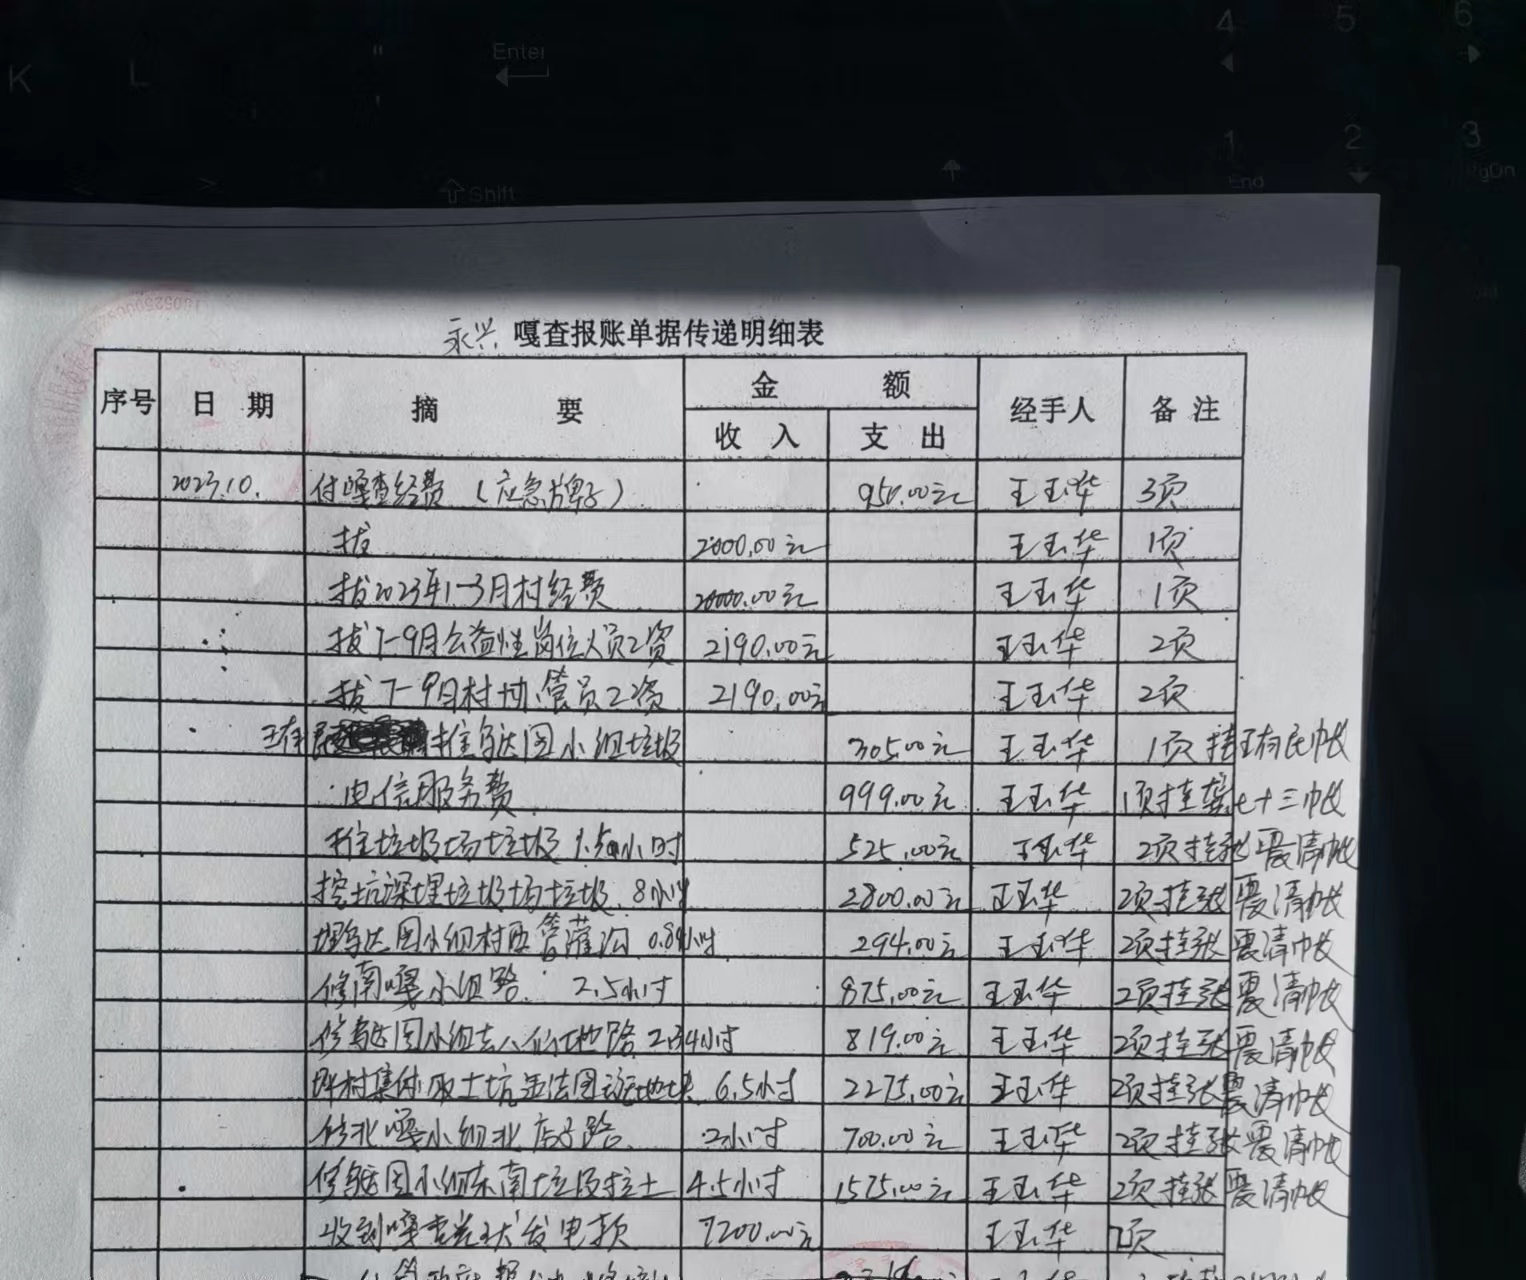 K L " ' Enter 4 5 6
1 2 3
Shift End PgDn
永兴 嘎查报账单据传递明细表
序号 日 期 摘 要 金 额 经手人 备 注
收 入 支 出
2023.10. 付嘎查经费（应急牌子） 950.00元 王玉华 3页
拔 2000.00元 王玉华 1页
拔2023年1-3月村经费 20000.00元 王玉华 1页
拔7-9月公益性岗位人员工资 2190.00元 王玉华 2页
拔7-9月村协管员工资 2190.00元 王玉华 2页
推乌达图小组垃圾 305.00元 王玉华 1页 挂王有民帐
电信服务费 999.00元 王玉华 1页挂 七十三帐
推垃圾场垃圾 1.5小时 525.00元 王玉华 2页挂张震清帐
挖坑深埋垃圾场垃圾 8小时 2800.00元 王玉华 2页挂张震清帐
埋乌达图小组村西管灌沟 0.84小时 294.00元 王玉华 2页挂张震清帐
修南嘎小组路 2.5小时 875.00元 王玉华 2页挂张震清帐
修乌达图小组去 地路 2.34小时 819.00元 王玉华 2页挂张震清帐
村集体取土坑 6.5小时 2275.00元 王玉华 2页挂张震清帐
修北嘎小组北店子路 2小时 700.00元 王玉华 2页挂张震清帐
修乌达图小组东南垃圾 土 4.5小时 1575.00元 王玉华 2页挂张震清帐
收到嘎查光伏发电款 7200.00元 王玉华 页